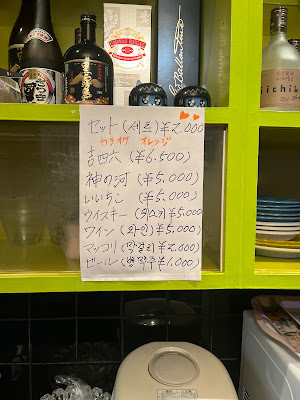 セット(세트)¥2.000
カラオケ オレンジ
吉四六 (¥6.500)
神の河 (¥5.000)
いいちこ (¥5.000)
ウイスキー(위스키¥5.000
ワイン(와인)¥5,000
マッコリ(막걸리)¥2.000
ビール(병맥주¥1.000)
iichiko